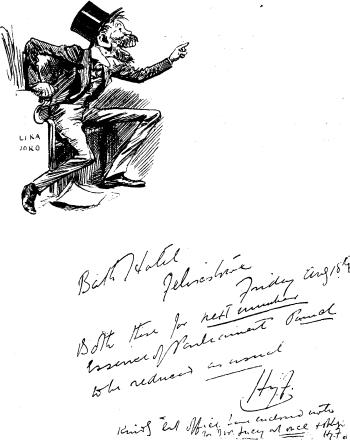 LIKA
JOKO
Bath Hotel
Felixstowe
Friday Aug 18th
Both these for next number
Essence of Parliament Punch
to be reduced as usual
Hy. F.
Kindly let office enclosed note
to Mr. Lucy at once &
Hy. F.